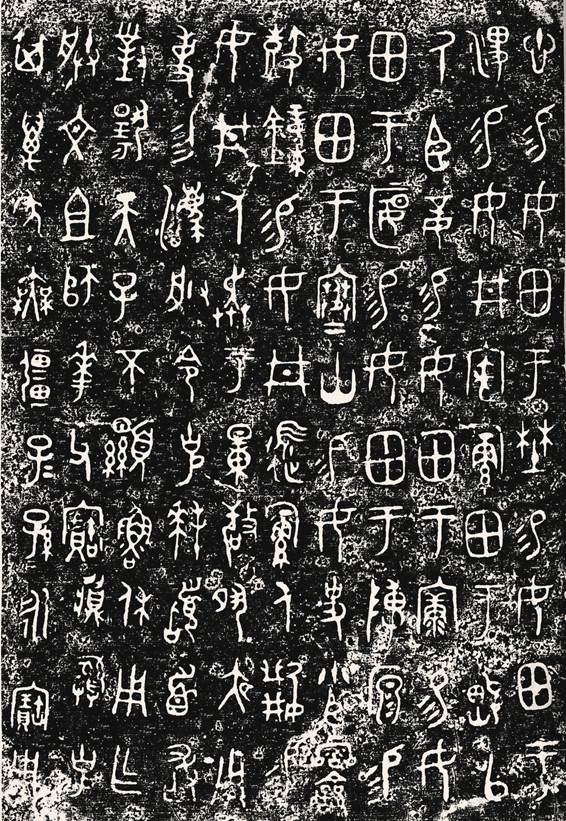 悤易女田于埜易女田于
渒易女井家𠣘田于㽙以
厥臣妾易女田于康易女
田于匽易女田于陴原易
女田于寒山易女史小臣霝龠
鼓鐘易女井微𠣘人𤔲易
女井人奔于量敬夙夜用
事勿灋朕令克拜稽首敢
對揚天子不顯魯休用乍
朕文且師華父寶𩰬彝克
其萬年無疆子子孫孫永寶用